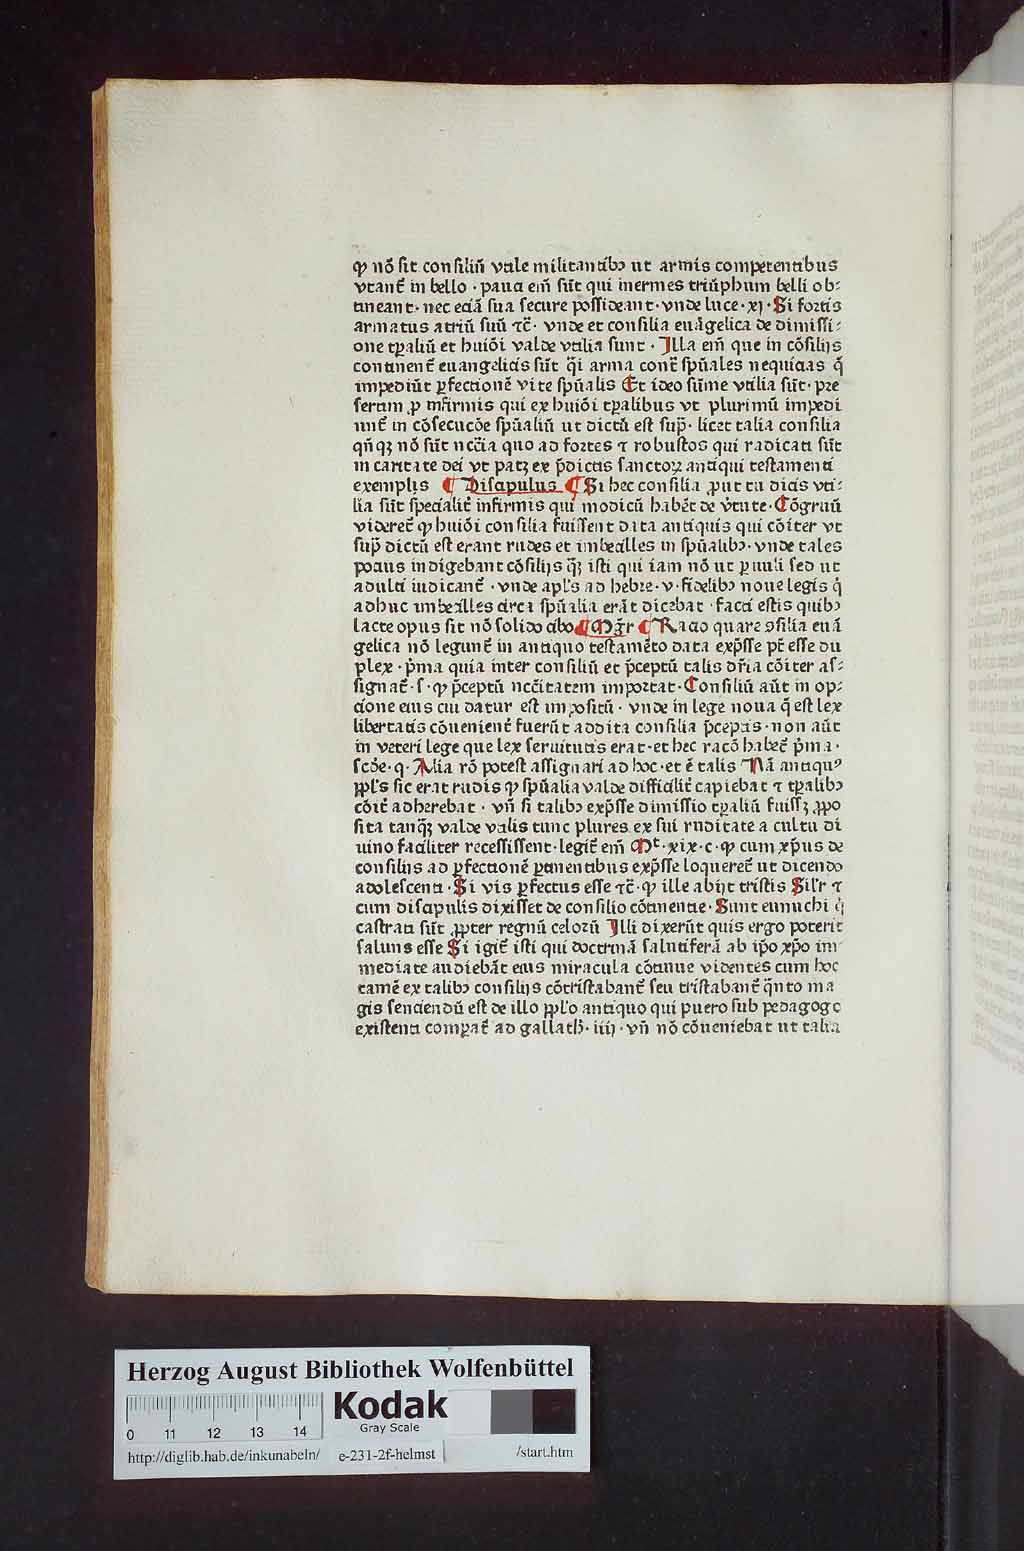 ꝙ nō sit consiliū vtile militantibꝫ ut armis competentibus
vtant᷑ in bello · pauci em̄ sūt qui inermes triūphum belli ob⸗
tineant · nec eciā sua secure possideant · vnde luce · xj · Si fortis
armatus atriū suū ⁊c̄ · vnde et consilia euāgelica de dimissi⸗
one tꝑaliū et huiōi valde vtilia sunt · Illa em̄ que in cōsilijs
continent᷑ euangelicis sūt q̄i arma cont᷑ spūales nequicias q̄
impediūt ꝑfectionē vite spūalis Et ideo sūme vtilia sūt · pre
sertim ꝓ infirmis qui ex huiōi tꝑalibus vt plurimū impedi
unt᷑ in cōsecucōe spūaliū ut dictū est sup̄ · licet talia consilia
qn̄qꝫ nō sūt nccīa quo ad fortes ⁊ robustos qui radicati sūt
in caritate dei vt patꝫ ex p̄dictis sanctoꝝ antiqui testamenti
exemplis ¶ Discipulus ¶ Si hec consilia ꝓut tu dicis vti⸗
lia sūt specialit᷑ infirmis qui modicū habēt de v̄tute · Cōgruū
videret᷑ ꝙ huiōi consilia fuissent data antiquis qui cōiter vt
sup̄ dictū est erant rudes et imbecilles in spūalibꝫ · vnde tales
pocius indigebant cōsilijs q̄ꝫ isti qui iam nō ut paruuli sed ut
adulti iudicant᷑ · vnde apl's ad hebre · v · fidelibꝫ noue legis q̄
adhuc imbecilles circa spūalia erāt dicebat · facti estis quibꝫ
lacte opus sit nō solido cibo ¶ Mgr̄ ¶ Racio quare ꝯsilia euā
gelica nō legunt᷑ in antiquo testamēto data exp̄sse pt̄ esse du
plex · p̄ma quia inter consiliū et p̄ceptū talis dr̄ia cōiter as⸗
signat᷑ · s · ꝙ p̄ceptū ncc̄itatem importat · Consiliū aūt in op⸗
cione eius cui datur est impositū · vnde in lege noua q̄ est lex
libertatis cōuenient᷑ fuerūt addita consilia p̄ceptis · non aūt
in veteri lege que lex seruitutis erat · et hec racō habet᷑ p̄ma ·
scd̄e · q · Alia rō potest assignari ad hoc · et ē talis Nā antiquꝰ
ppl's sic erat rudis ꝙ spūalia valde difficilit᷑ capiebat ⁊ tꝑalibꝫ
cōit᷑ adherebat · vn̄ si talibꝫ exp̄sse dimissio tꝑaliū fuissꝫ ꝓpo
sita tanq̄ꝫ valde vtilis tunc plures ex sui ruditate a cultu di
uino faciliter recessissent · legit᷑ em̄ Mt · xix · c · ꝙ cum xp̄us de
consilijs ad ꝑfectionē ꝑtinentibus exp̄sse loqueret᷑ ut dicendo
adolescenti · Si vis ꝑfectus esse ⁊c̄ · ꝙ ille abijt tristis Sil'r ⁊
cum discipulis dixisset de consilio cōtinentie · Sunt eunuchi q̄
castrati sūt ꝓpter regnū celorū Illi dixerūt quis ergo poterit
saluus esse Si igit᷑ isti qui doctrinā salutiferā ab ip̄o xp̄o im
mediate audiebāt eius miracula cōtinue videntes cum hoc
tamē ex talibꝫ consilijs cōtristabant᷑ seu tristabant᷑ q̄nto ma
gis senciendū est de illo ppl'o antiquo qui puero sub pedagogo
existenti compat᷑ ad gallath · iiij · vn̄ nō cōueniebat ut talia
Herzog August Bibliothek Wolfenbüttel
Kodak
Gray Scale
0 11 12 13 14
http://diglib.hab.de/inkunabeln/ e-231-2f-helmst /start.htm